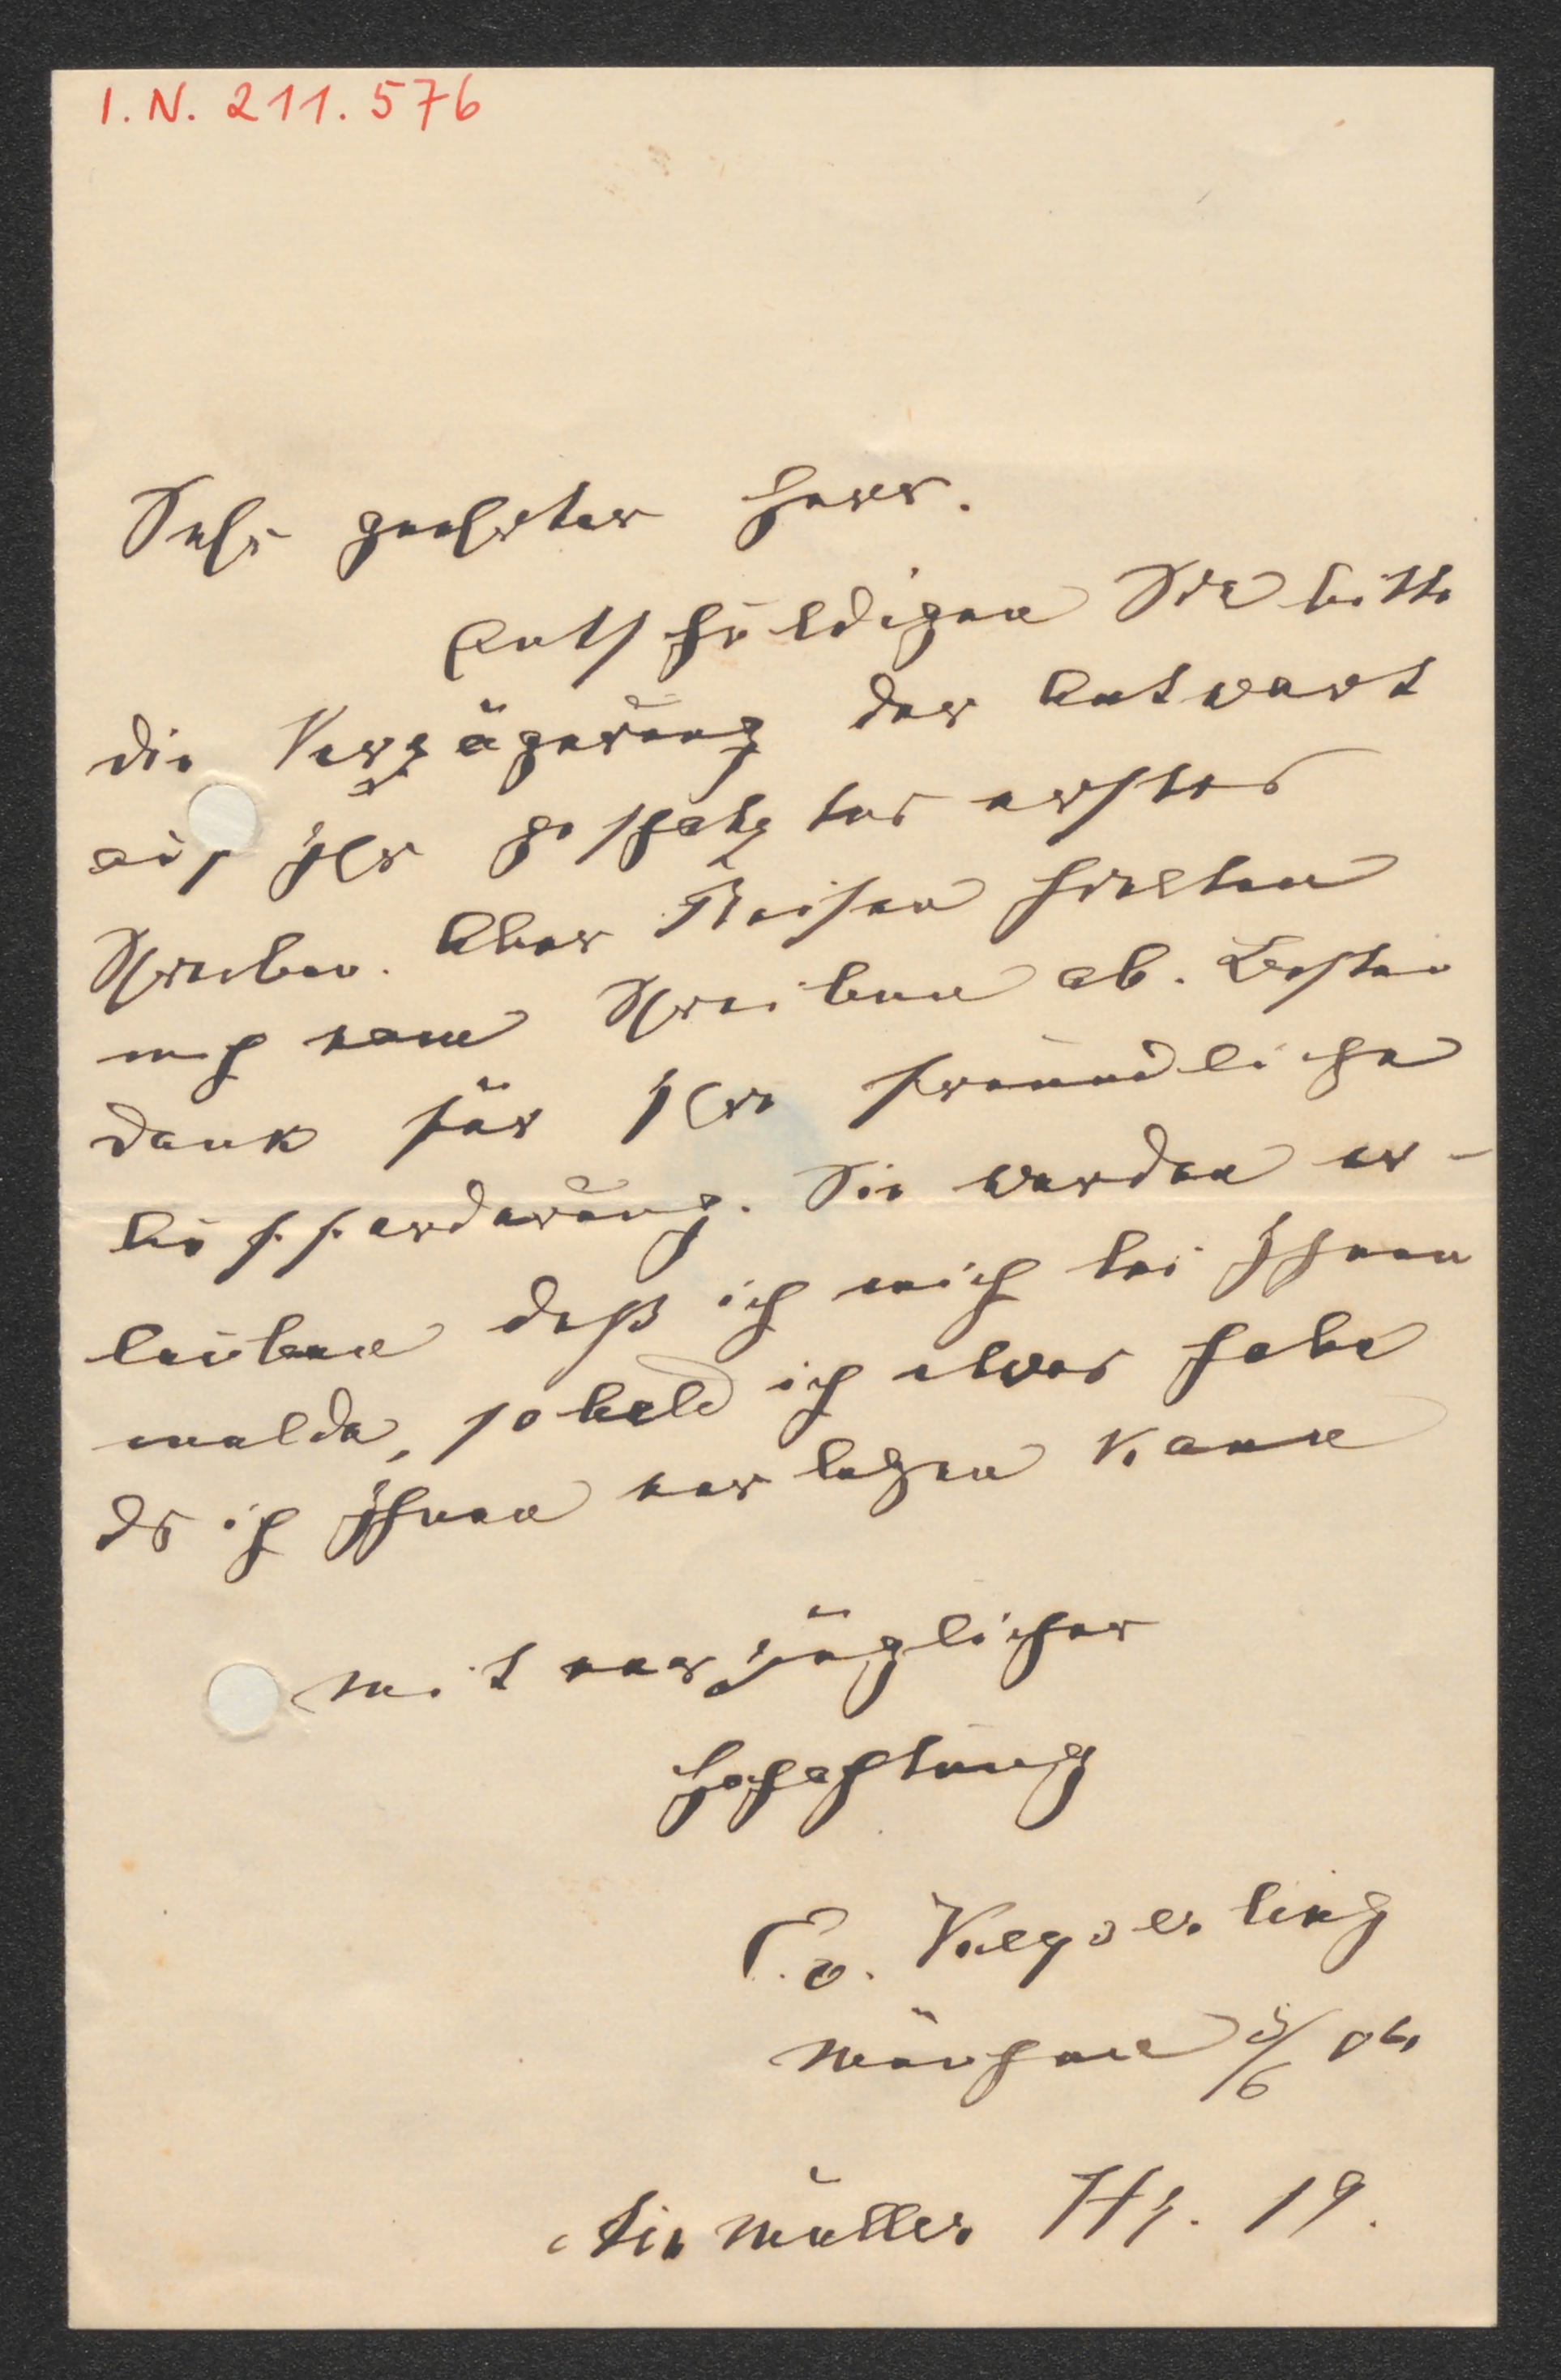 I. N. 211.576
Sehr geehrter Herr.
Entschuldigen Sie bitte
die Verzögerung der Antwort
auf Ihr geschätztes erstes
Schreiben. Aber Reisen hielten
mich vom Schreiben ab. Besten
Dank für Ihre freundliche
Aufforderung. Sie werden er-
lauben daß ich mich bei Ihnen
melde, sobald ich etwas habe
ds ich Ihnen vorlegen kann
Mit vorzüglicher
Hochachtung
E. v. Keyserling
München 5/6 04
Ainmüller Str. 19.